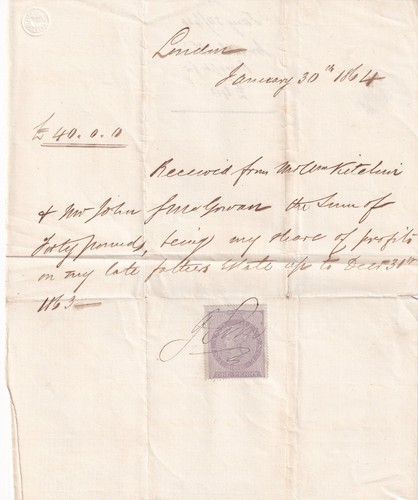 London
January 30th 1864
£40.0.0
Received from Mr Wm Kitchin
& Mr John J McGowan the Sum of
Forty pounds, being my share of profits
on my late fathers Note up to Decr 31st
1863
ONE PENNY